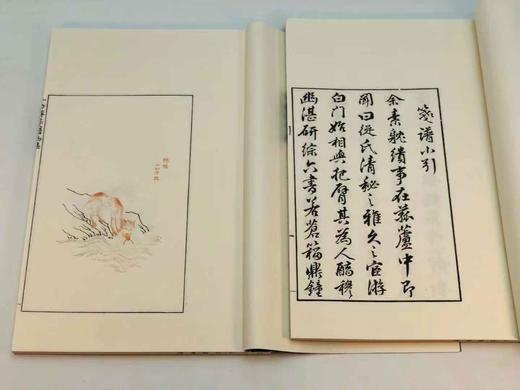 箋譜小引
余素躭繢事在菰蘆中即
聞曰從氏清秘之雅久之宦游
白門始相與把臂其為人醕穆
幽湛研綜六書若蒼籀鼎鐘